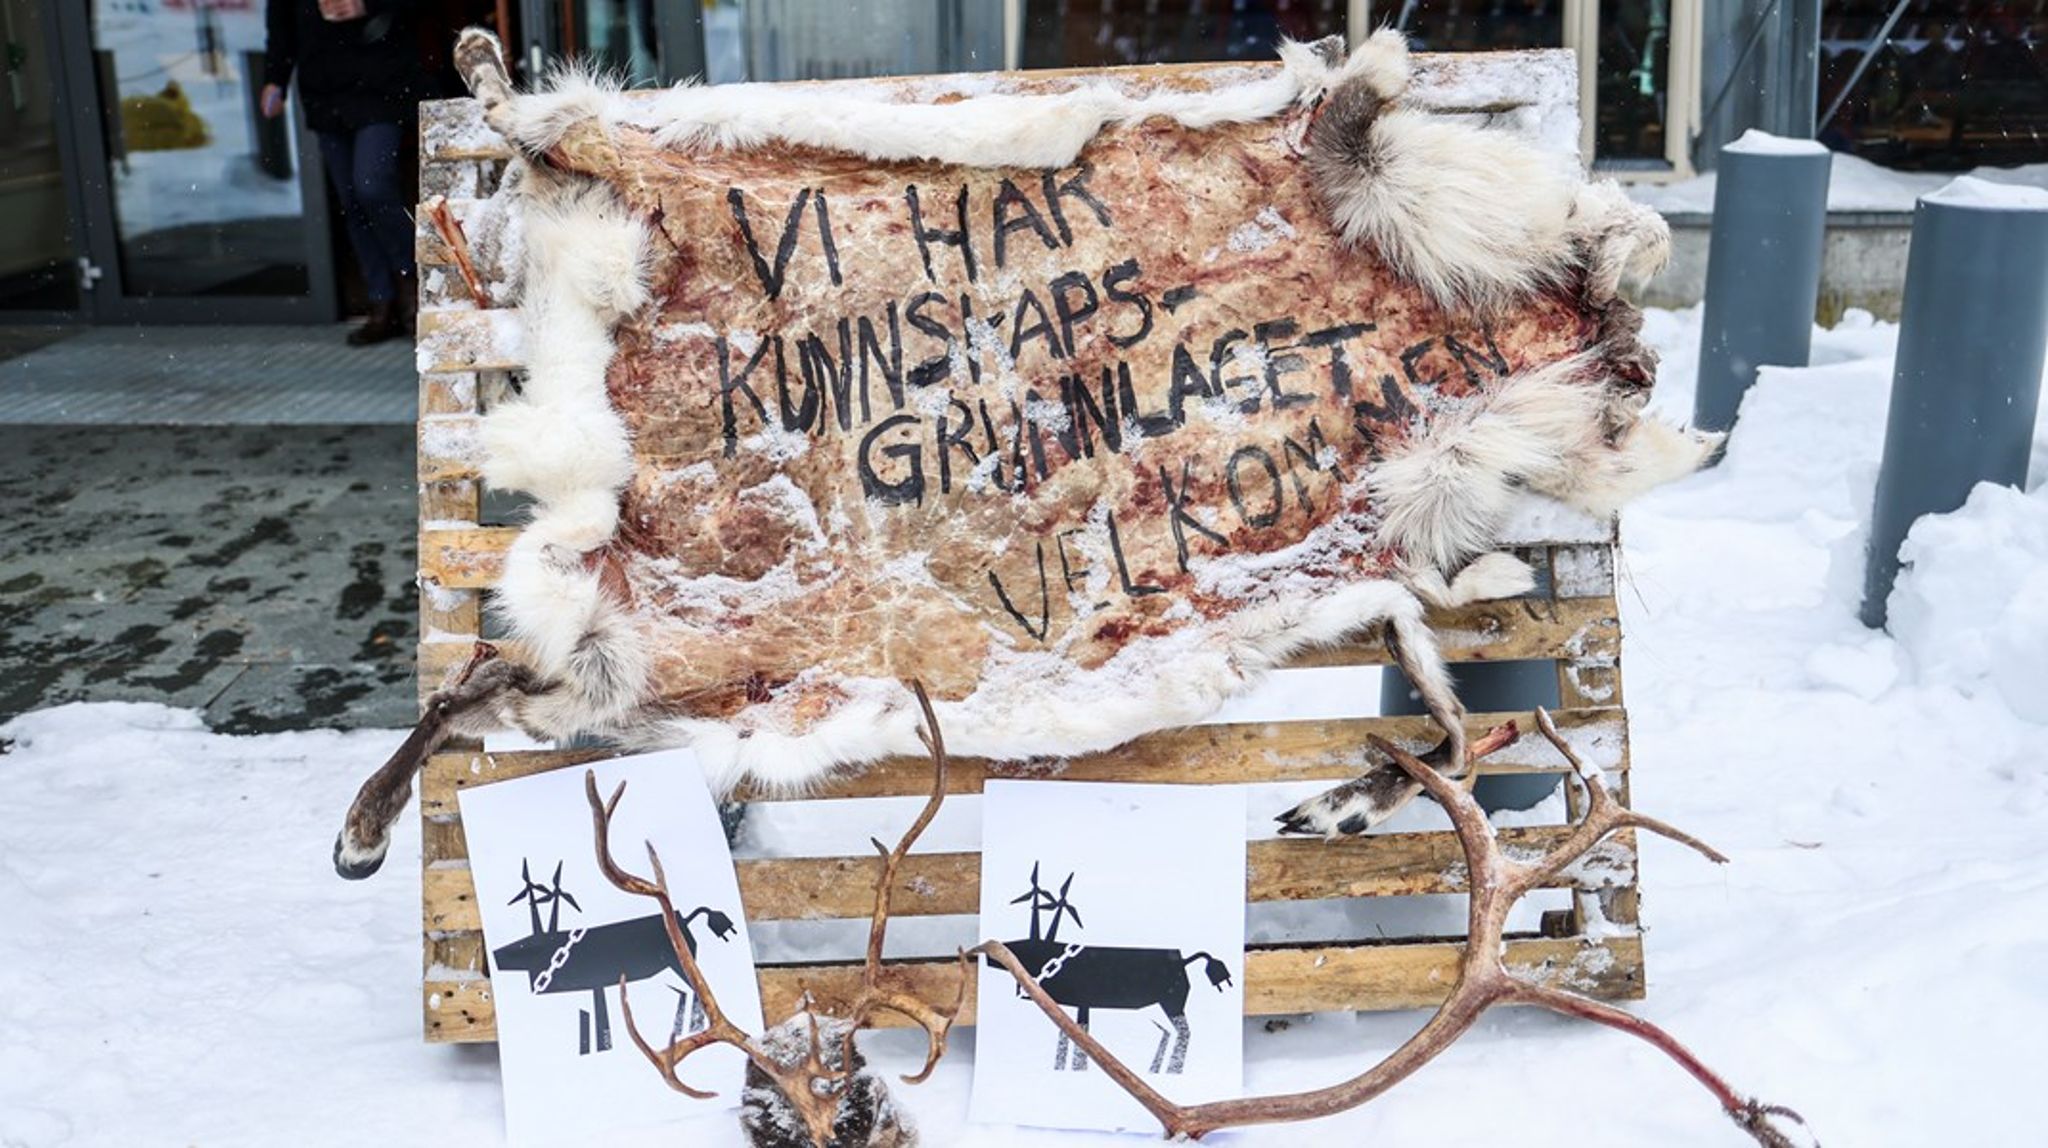 VI HAR
KUNNSKAPS-
GRUNNLAGET
VELKOMMEN